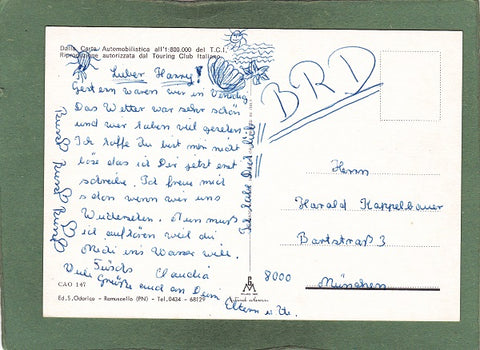 Dalla Carta Automobilistica all'1:800.000 del T.C.I.
Riproduzione autorizzata dal Touring Club Italiano
Lieber Harry!
Gestern waren wir in Venedig
Das Wetter war sehr schön
und wir haben viel gesehen
Ich hoffe Du bist mir nicht
böse das ich Dir jetzt erst
schreibe. Ich freue mich
schon wenn wir uns
Wiedersehen. Nun muß
ich aufhören weil die
Heidi ins Wasser will.
Tschüs Claudia
Viele Grüße auch an Deine
Eltern u.
Bussi Bussi Bussi
Ich habe Dich lieb!
BRD
Herrn
Harald Kappelbauer
Bartstraß 3
8000 München
CAO 147
Ed. S. Odorico - Ramuscello (PN) - Tel. 0434 - 68129